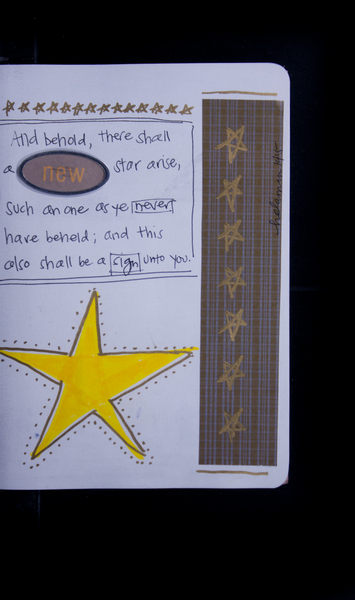 And behold, there shall
a new star arise,
such an one as ye never
have beheld; and this
also shall be a sign unto you.
helaman 14:5